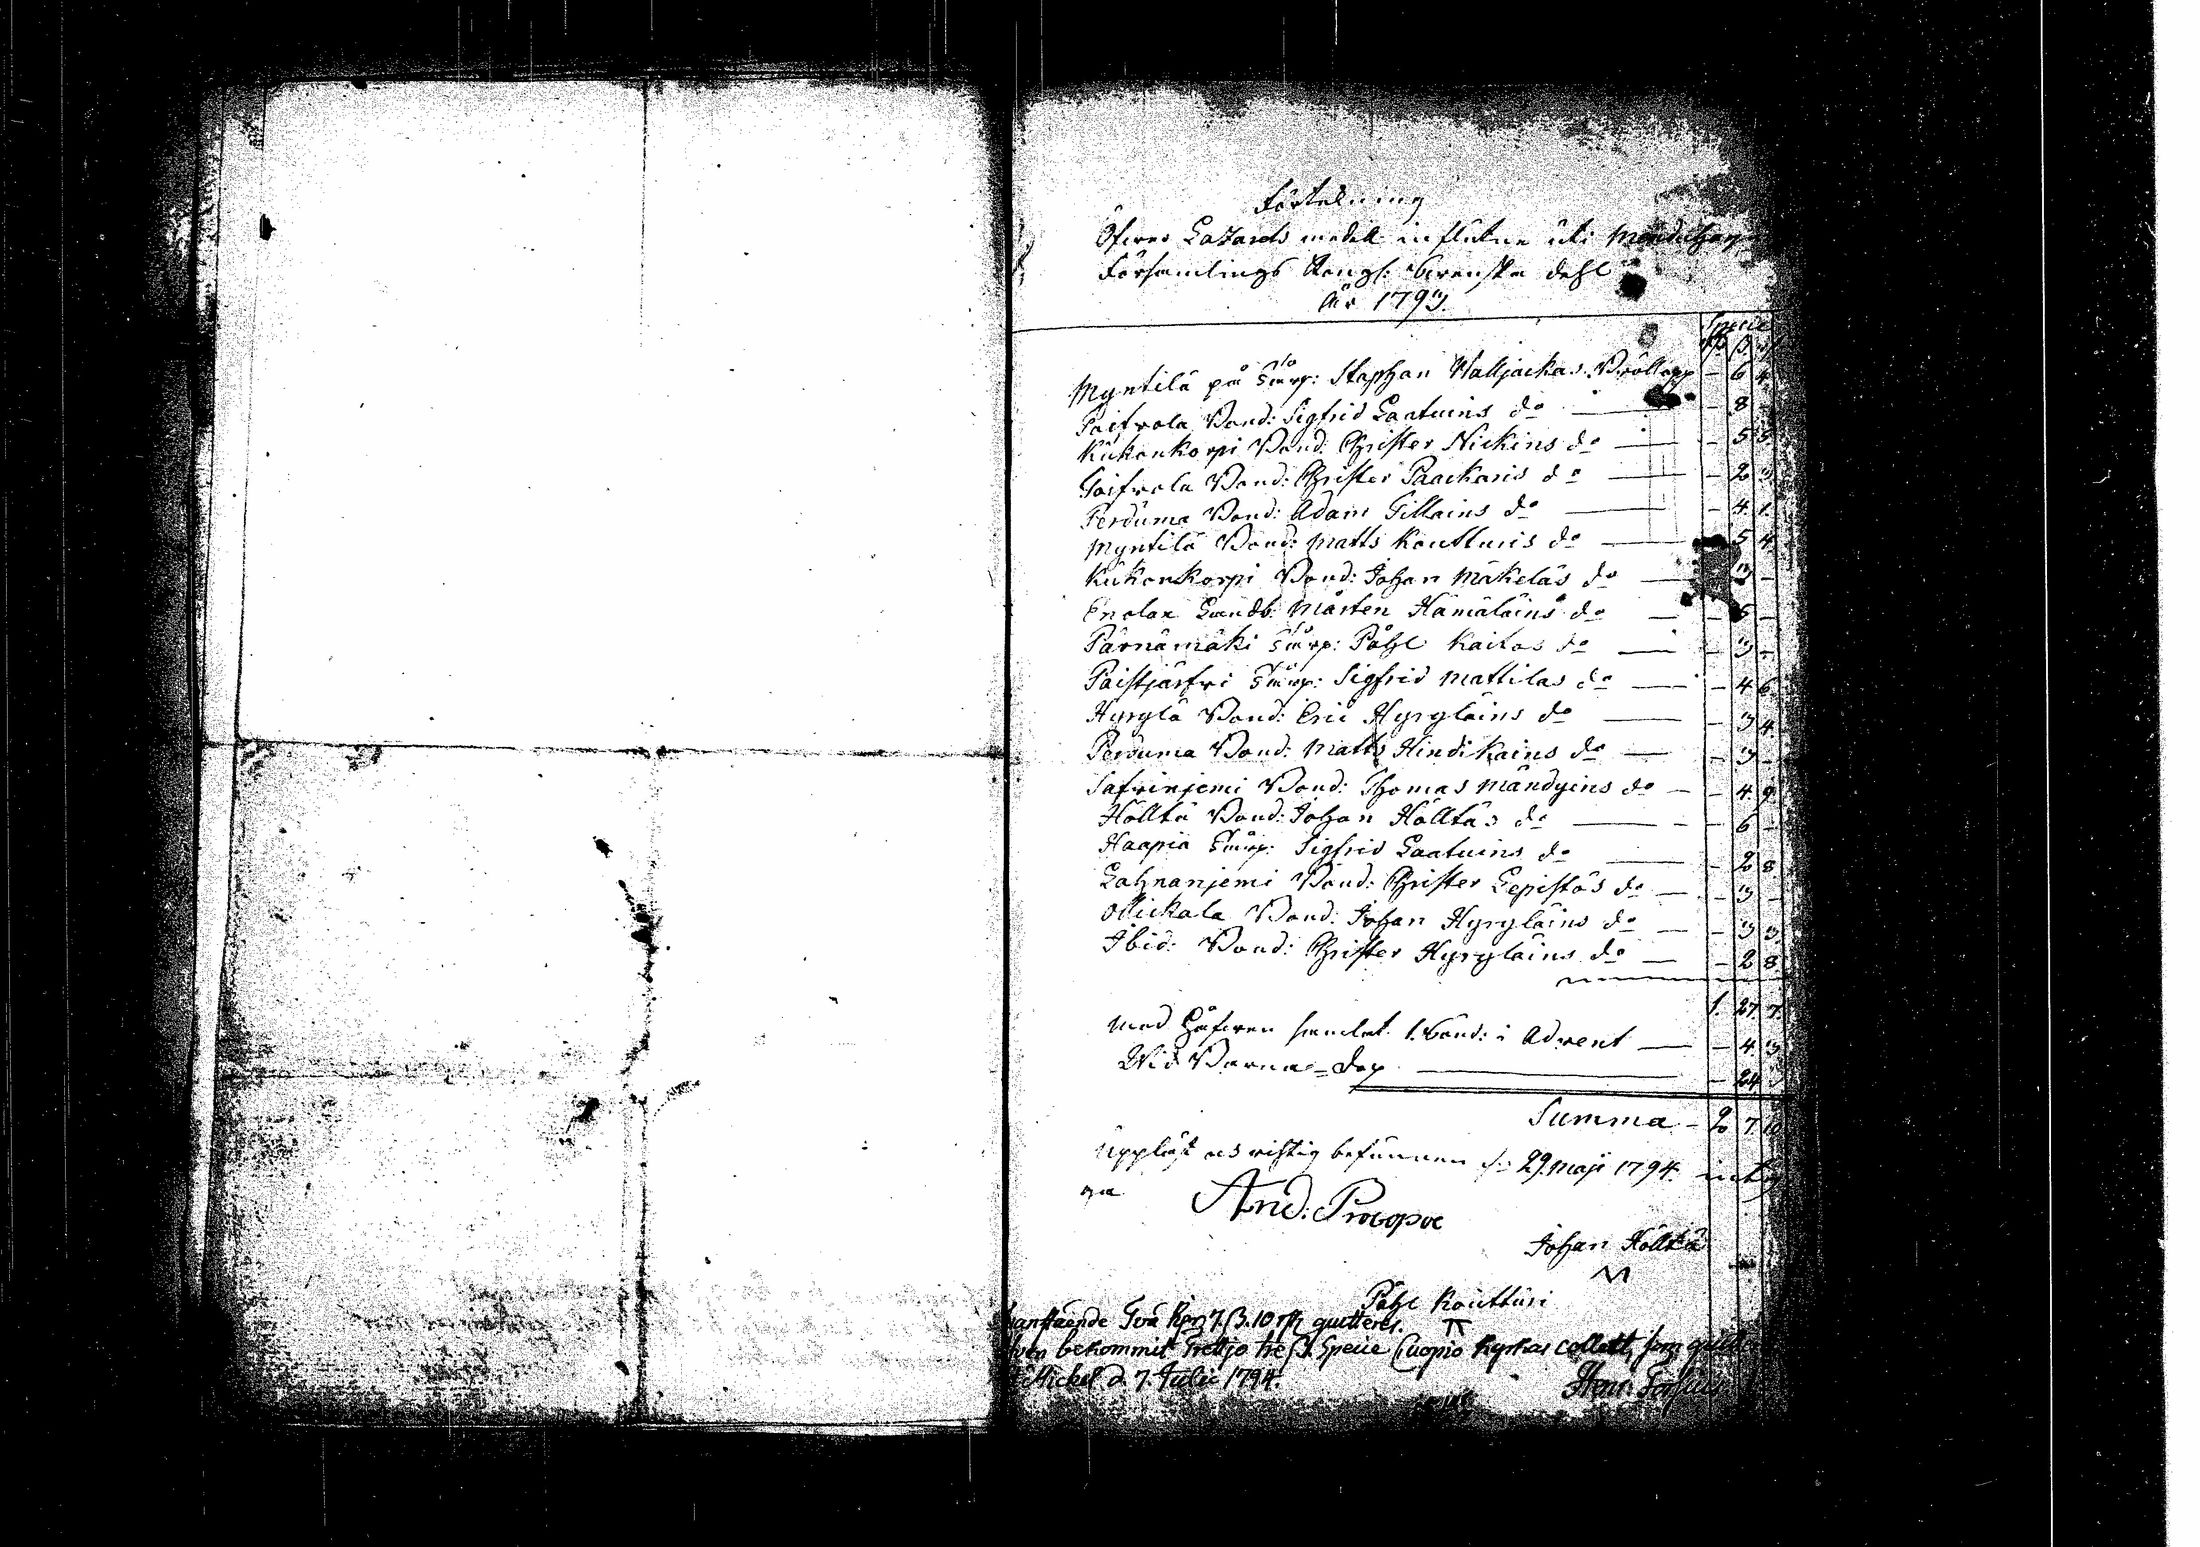 Förtekning
Öfwer Lazarets medell influtne uti Mänduharju
Församlings Kongl: Swenska dehl
År 1793.
Specie
Rd ß rst
Myntilä på Torp: Staphan Walljackas Bröllopp — 6 4.
Paisvola Bond: Sigfrid Laatuins do — 8 -
Kukonkorpi Bond: Christer Nickins do — 5 5.
Toifvola Bond: Christer Paackaris do — 2 3
Perduma Bond: Adam Tillains do — 4. 1.
Myntilä Bond: Matts Koutturis do — 5 4.
Kukonkorpi Bond: Johan Mäkeläs do — 3 —
Enolax Landb: Mårten Hämäläins do — 5 —
Pärnämäki Torp: Påhl Kaitas do — 3 —
Paistjärfvi Torp: Sigfrid Mattilas do — 4 6.
Hyrylä Bond: Eric Hyryläins do — 3 4.
Perduma Bond: Matts Hindikains do — 3 —
Safvinjemi Bond: Thomas Mändyins do — 4. 9.
Hölltä Bond: Johan Hölltäs do — 6 —
Haapia Torp: Sigfrid Laatuins do — 2 8
Lahnanjemi Bond: Christer Lepistös do — 3 —
Ollickala Bond: Johan Hyryläins do — 3 3.
Ibid: Bond: Christer Hyryläins do — 2 8.
1. 27. 7.
Med Håfwen samlat 1. Sönd: i Advent — 4. 3.
Wid Barna-dop — 24
Summa — 2 7. 10
Uppläst och richtig befunnen d: 29. Maji 1794. inty
ga
And: Procopoe
Johan Hölltä
Påhl Koutturi
anstående Två Rdr 7. ß. 10 rst qvitteres.
bekommit Trettjo tre ß. Specie Cuopio Kyrkas collect, som
Michel d. 7. Julii 1794.
Henr.